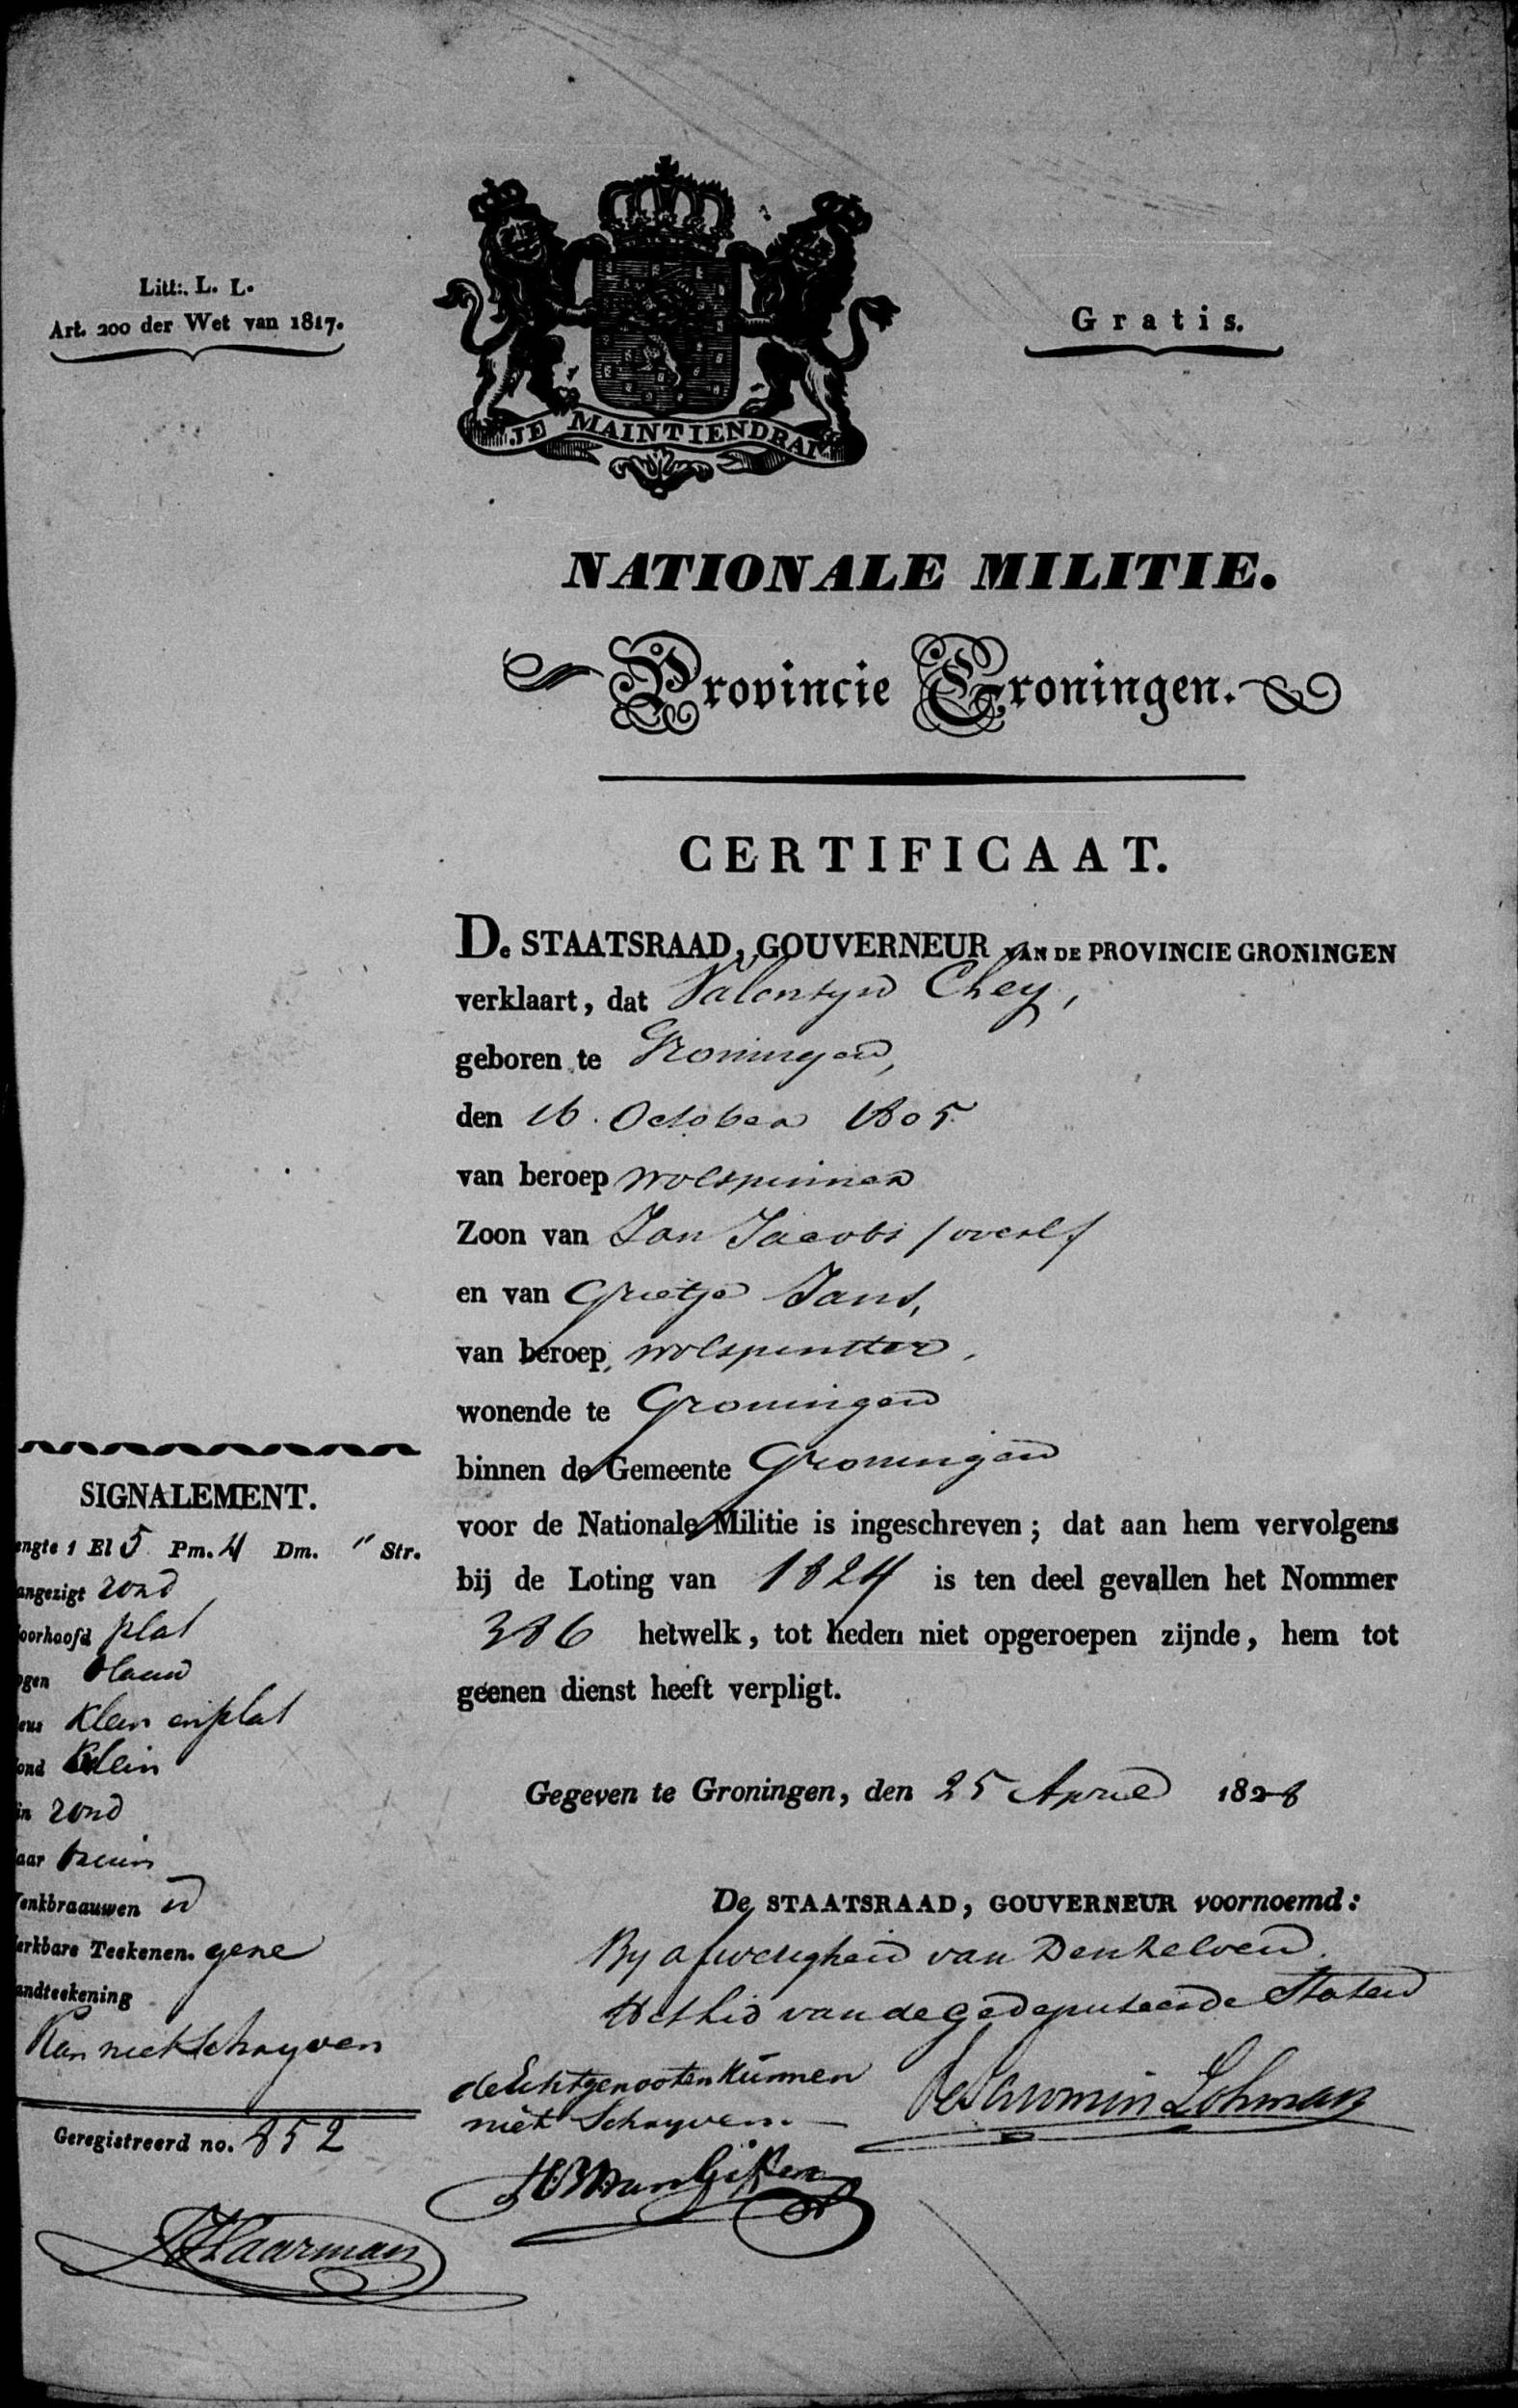 Litt:. L. L.
Art. 200 der Wet van 1817.
Gratis.
JE MAINTIENDRAI
NATIONALE MILITIE.
Provincie Groningen.
CERTIFICAAT.
De STAATSRAAD, GOUVERNEUR VAN DE PROVINCIE GRONINGEN
verklaart, dat Valentyn Chey,
geboren te Groningen,
den 16. October 1805
van beroep wolspinner
Zoon van Jan Jacobs /overl/
en van Grietje Jans,
van beroep wolspinster,
wonende te Groningen
binnen de Gemeente Groningen
voor de Nationale Militie is ingeschreven; dat aan hem vervolgens
bij de Loting van 1824 is ten deel gevallen het Nommer
386 hetwelk, tot heden niet opgeroepen zijnde, hem tot
geenen dienst heeft verpligt.
Gegeven te Groningen, den 25 April 1828
De STAATSRAAD, GOUVERNEUR voornoemd:
By afwezigheid van Denzelven.
Het Lid van de gedeputeerde Staten
de Savornin Lohman
de Echtgenooten kunnen
niet Schryven.
SIGNALEMENT.
engte 1 El 5 Pm. 4 Dm. " Str.
angezigt rond
oorhoofd plat
ogen blauw
eus klein en plat
ond klein
in rond
aar bruin
enkbraauwen id
erkbare Teekenen. gene
andteekening
Kan niet Schryven
Geregistreerd no. 852
Haarman